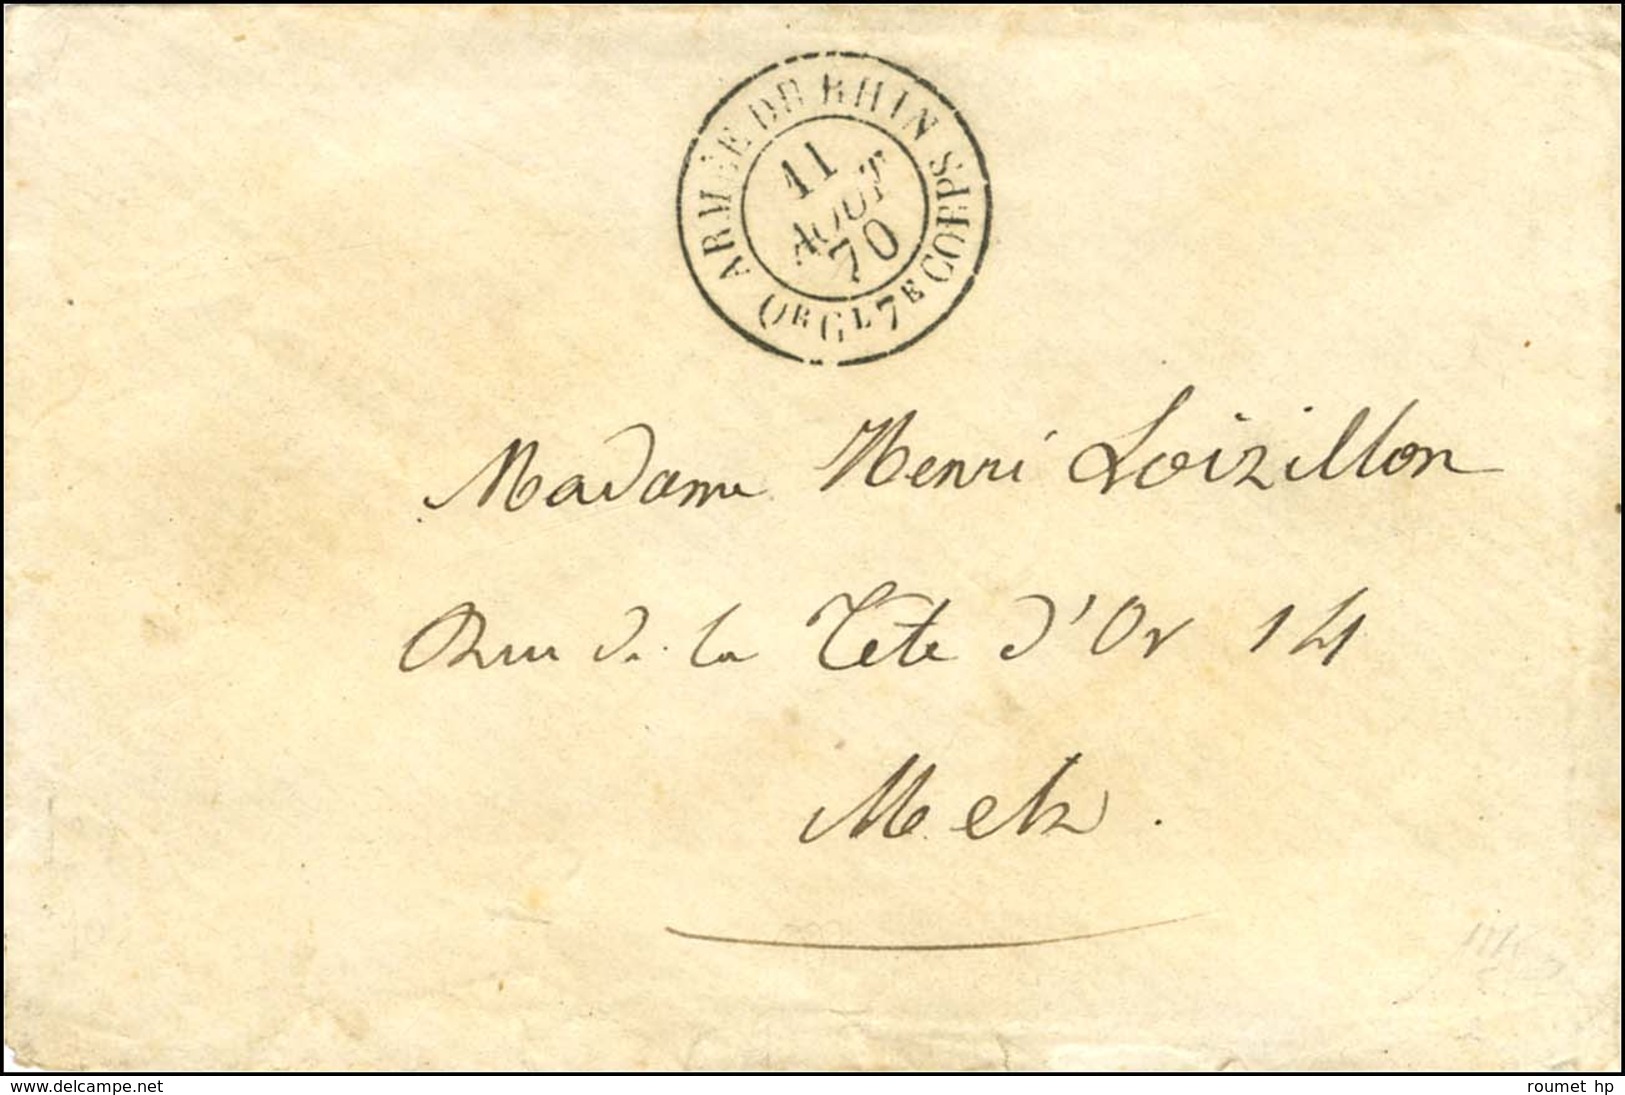 ARMÉE DU RHIN
11
AOUT
70
QR GL 7E CORPS
Madame Henri Loizillon
Rue de la Tete d'Or 14
Metz.
www.delcampe.net
roumet hp